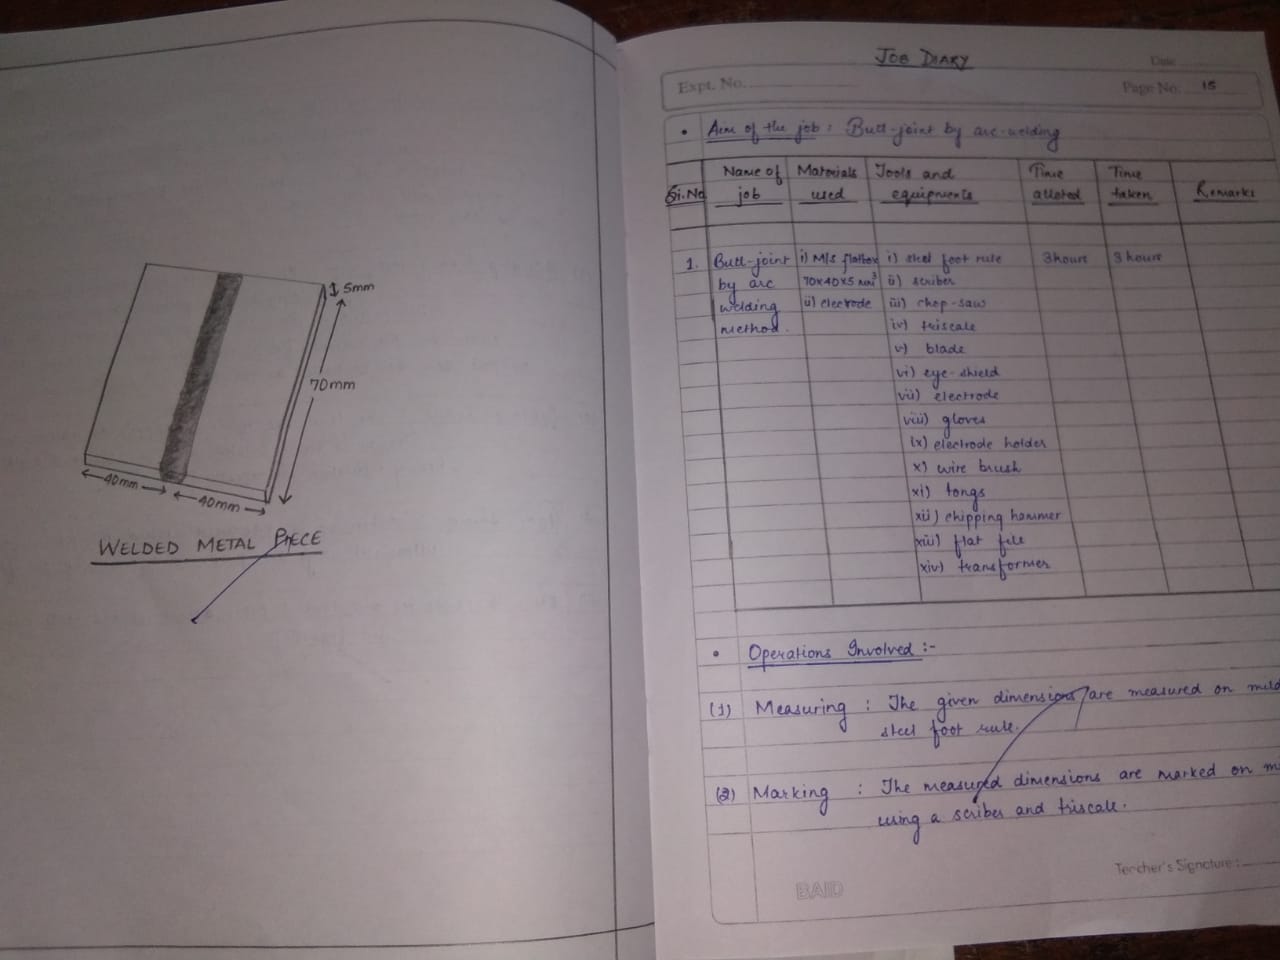 5mm
70mm
40mm
40mm
WELDED METAL PIECE
JOB DIARY
Date
Expt. No.
Page No. 15
• Aim of the job : Butt-joint by arc-welding
Si.No
Name of job
Materials used
Tools and equipments
Time alloted
Time taken
Remarks
1.
Butt-joint
by arc
welding
method.
i) M/S flatbar
70x40x5 mm³
ii) electrode
i) steel foot rule
ii) scriber
iii) chop-saw
iv) triscale
v) blade
vi) eye-shield
vii) electrode
viii) gloves
ix) electrode holder
x) wire brush
xi) tongs
xii) chipping hammer
xiii) flat file
xiv) transformer
3hours
3 hours
• Operations Involved :-
(1) Measuring : The given dimensions are measured on mild
steel foot rule.
(2) Marking : The measured dimensions are marked on
using a scriber and triscale.
Teacher's Signature :
BAID